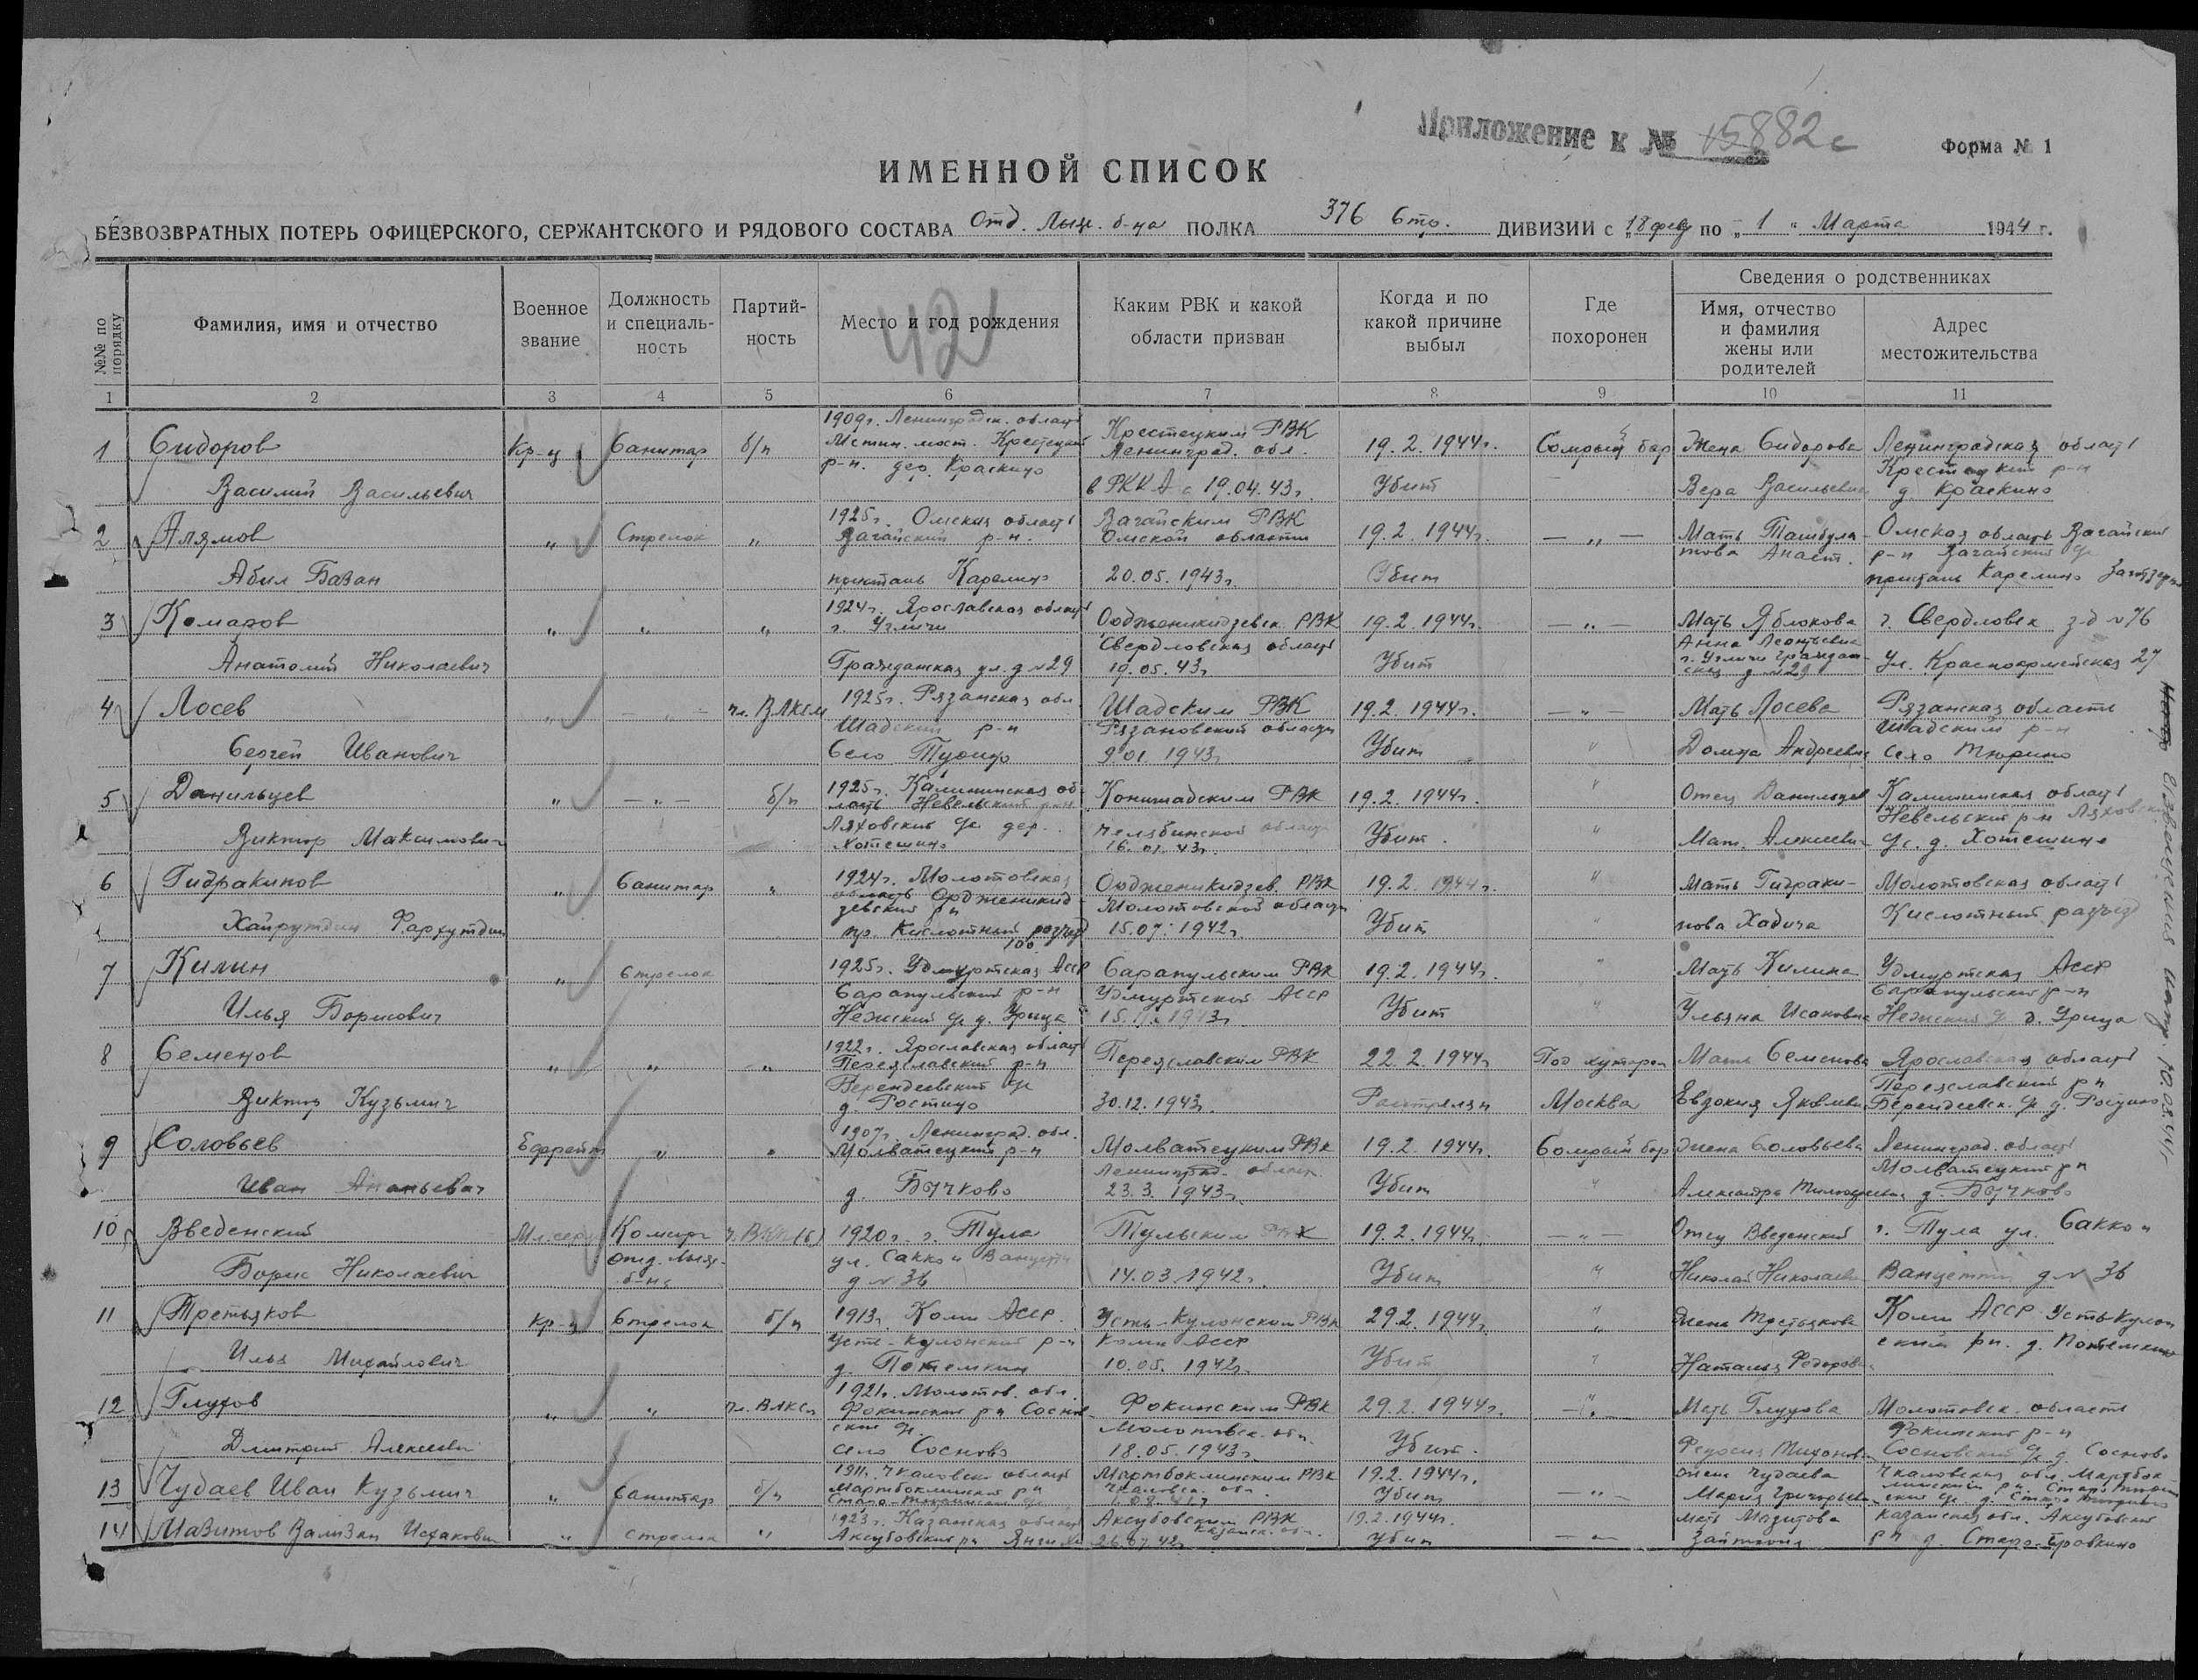 Приложение к № 15882с
Форма № 1
ИМЕННОЙ СПИСОК
БЕЗВОЗВРАТНЫХ ПОТЕРЬ ОФИЦЕРСКОГО, СЕРЖАНТСКОГО И РЯДОВОГО СОСТАВА Отд. Лыж. б-на ПОЛКА 376 Стр. ДИВИЗИИ с "18 февр по "1" Марта 1944 г.
№№ по порядку
Фамилия, имя и отчество
Военное звание
Должность и специаль-ность
Партий-ность
Место и год рождения
Каким РВК и какой области призван
Когда и по какой причине выбыл
Где похоронен
Сведения о родственниках
Имя, отчество и фамилия жены или родителей
Адрес местожительства
42
1 2 3 4 5 6 7 8 9 10 11
1 Сидоров Василий Васильевич
Кр-ц Санитар б/п
1909г. Ленинградск. область
р-н. дер. Краскино
Крестецким РВК
Ленинград. обл.
в РККА с 19.04.43г.
19.2.1944г. Убит
Сомрый бор
Жена Сидорова
Вера Васильевн
Ленинградская область
Крестецкий р-н
д Краскино
2 Алямов Абил Базан
" Стрелок "
1925г. Омская область
Вагайский р-н.
пристань Карелино
Вагайским РВК
Омской области
20.05.1943г.
19.2.1944г. Убит
— " —
Мать Ташбула-
това Анаст.
Омская область Вагайский
р-н Вагайский
пристань Карелино
3 Комаров Анатолий Николаевич
" " "
1924г. Ярославская область
г. Угличи
Гражданская ул. д №29
Орджникидзевск. РВК
Свердловская область
19.05.43г
19.2.1944г. Убит
— " —
Мать Яблокова
Анна Леонтьевна
г. Угличи Граждан-
ская д №29
г. Свердловск з-д №76
ул. Красноармейская 27
4 Лосев Сергей Иванович
" " чл. ВЛКСМ
1925г. Рязанская обл
Шадский р-н
Шадским РВК
Рязановский области
9.01.1943г
19.2.1944г. Убит
— " —
Мать Лосева
Домна Андреевна
Рязанская область
Шадский р-н
Село Тюрино
5 Данильцев Виктор Максимович
" — " — б/п
1925г. Калининская об-
ласть Невельский р-н
Ляховский дер.
Хотешино
РВК
Челябинской области
16.01.43г.
19.2.1944г. Убит
"
Отец Данильцев
Мат. Алексеевич
Калининская область
Невельский р-н Ляхов
д. Хотешино
6 Гидракипов Хайрутдин Фархутдин
" Санитар "
1924г. Молотовская
область Орджоникид
зевский р-н
Кислотный разъезд
100
РВК
Молотовской области
15.07.1942г.
19.2.1944г. Убит
"
Мать Гидраки-
пова Хадича
Молотовская область
Кислотный разъезд
7 Килин Илья Борисович
" Стрелок
1925г. Удмуртская АССР
Сарапульский р-н
Сарапульским РВК
Удмуртской АССР
19.2.1944г. Убит
"
Мать Килина
Ульяна Исаковна
Удмуртская АССР
Сарапульский р-н
8 Семенов Виктор Кузьмич
" " "
1922г. Ярославская область
Переяславский р-н
Берендеевский
д. Ростино
Переяславским РВК
30.12.1943г.
22.2.1944г Расстрелян
Под хутором Москва
Мать Семенова
Евдокия Яковлевн
Ярославская область
Переяславский р-н
Берендеевск. д. Ростино
9 Соловьев Иван Ананьевич
Ефрейт " "
1907г. Ленинград. обл.
Молватецкий р-н
д. Бучково
Молватецким РВК
Ленинград. област.
23.3.1943г.
19.2.1944г. Убит
Сомрый бор
Жена Соловьева
Александра
Ленинград. область
Молватецкий р-н
д. Бучково
10 Введенский Борис Николаевич
Мл. серж Комиср отд. лыж. б-на ч. ВКП(б)
1920г. г. Тула
ул. Сакко и Ванцетти
д № 36
Тульским РВК
14.03.1942г.
19.2.1944г. Убит
— " —
Отец Введенский
Николай Николаев
г. Тула ул. Сакко и
Ванцетти д № 36
11 Третьяков Илья Михайлович
Кр-ц Стрелок б/п
1913г Коми АССР.
Усть-Кулонский р-н
д. Потемкин
Усть-Кулонским РВК
Коми АССР
10.05.1942г.
29.2.1944г. Убит
"
Жена Третьякова
Наталья Федоровн
Коми АССР Усть-Кулон
ский р-н. д. Потемкино
12 Глухов Дмитрий Алексеевич
" " чл. ВЛКСМ
1921г. Молотов. обл.
Фокинский р-н Соснов-
ский
село Сосново
Фокинским РВК
Молотовск. обл.
18.05.1943г
29.2.1944г. Убит.
— " —
Мать Глухова
Федосия Тихоновн
Молотовск. область
Фокинский р-н
Сосновский д. Сосново
13 Чудаев Иван Кузьмич
" Санитар б/п
1911г. Чкаловск область
РВК
Чкаловск. обл.
19.2.1944г. Убит
— " —
Жена Чудаева
Мария Григорьевн
Чкаловская обл.
14 Мазитов Вализан Исхакович
" стрелок "
1923г. Казанская область
Аксубовский р-н
Аксубовским РВК
Казанск. обл.
26.07.42г
19.2.1944г. Убит
— " —
мать Мазитова
Казанская обл. Аксубовский
р-н д.
Извещения напр. 10.03.44г